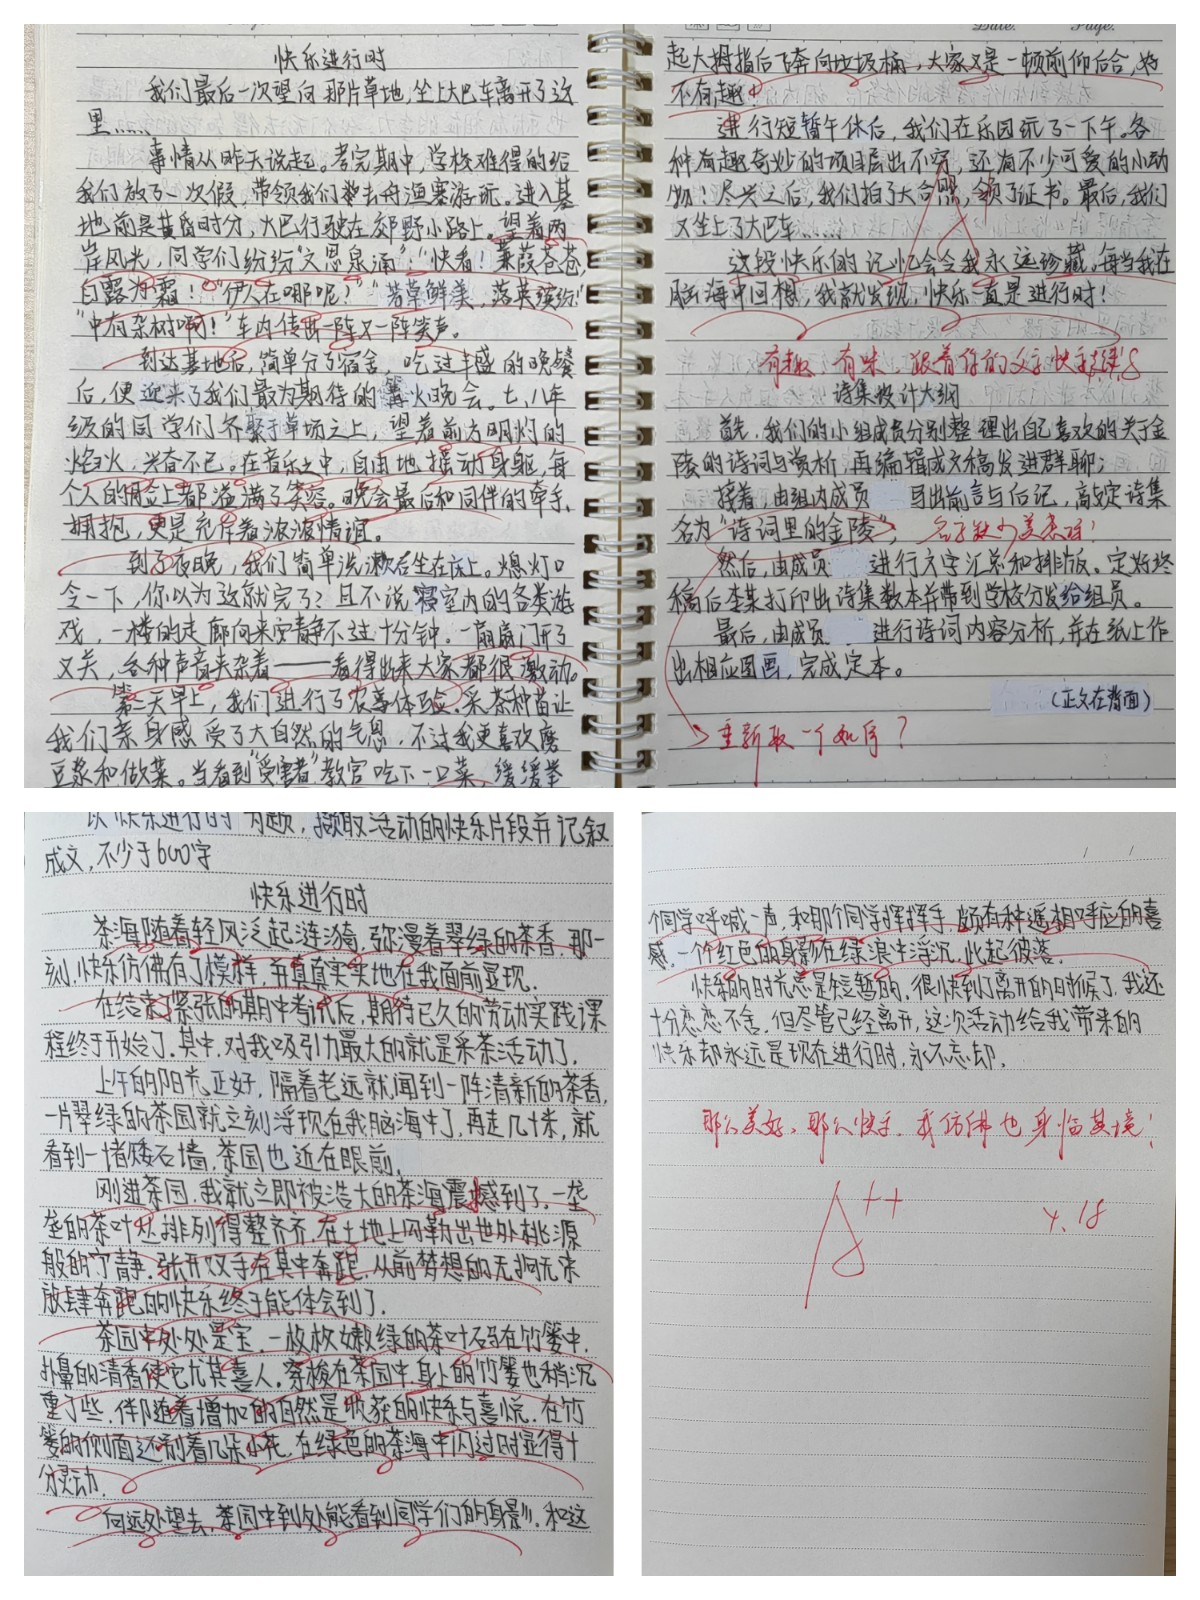 快乐进行时
我们最后一次望向那片草地,坐上大巴车离开了这
里……
事情从昨天说起。考完期中,学校难得的给
我们放了一次假,带领我们去舟渔寨游玩。进入基
地前是黄昏时分,大巴行驶在郊野小路上。望着两
岸风光,同学们纷纷"文思泉涌":"快看!蒹葭苍苍,
白露为霜!""伊人在哪呢?""芳草鲜美,落英缤纷!"
"中有杂树啊!"车内传出一阵又一阵笑声。
到达基地后,简单分了宿舍,吃过丰盛的晚餐
后,便迎来了我们最为期待的篝火晚会。七、八年
级的同学们齐聚于草场之上,望着前方明灯的
焰火,兴奋不已。在音乐之中,自由地摇动身躯,每
个人的脸上都溢满了笑容。晚会最后和同伴的牵手、
拥抱,更是充斥着浓浓情谊。
到了夜晚,我们简单洗漱后坐在床上。熄灯口
令一下,你以为这就完了?且不说寝室内的各类游
戏,一楼的走廊向来安静不过十分钟。一扇扇门开了
又关,各种声音夹杂着——看得出来大家都很激动。
第二天早上,我们进行了农事体验。采茶种苗让
我们亲身感受了大自然的气息,不过我更喜欢磨
豆浆和做菜。当看到"受害者"教官吃下一口菜,缓缓举
Date. Page.
起大拇指后飞奔向垃圾桶,大家又是一顿前仰后合,好
不有趣。
进行短暂午休后,我们在乐园玩了一下午。各
种有趣奇妙的项目层出不穷,还有不少可爱的小动
物!尽兴之后,我们拍了大合照,领了证书。最后,我们
又坐上了大巴车……
这段快乐的记忆会令我永远珍藏。每当我在
脑海中回想,我就发现,快乐一直是进行时!
有趣、有味,跟着你的文字快乐
诗集设计大纲
首先,我们的小组成员分别整理出自己喜欢的关于金
陵的诗词与赏析,再编辑成文稿发进群聊;
接着,由组内成员 写出前言与后记,敲定诗集
名为"诗词里的金陵"; 名字缺少美意哦!
然后,由成员 进行文字汇总和排版。定好终
稿后李某打印出诗集数本并带到学校分发给组员。
最后,由成员 进行诗词内容分析,并在纸上作
出相应图画,完成定本。
(正文在背面)
重新取一个如何?
以"快乐进行时"为题,撷取活动的快乐片段并记叙
成文,不少于600字
快乐进行时
茶海随着轻风泛起涟漪,弥漫着翠绿的茶香,那一
刻,快乐仿佛有了模样,并真真实实地在我面前显现。
在结束了紧张的期中考试后,期待已久的劳动实践课
程终于开始了。其中,对我吸引力最大的就是采茶活动了。
上午的阳光正好,隔着老远就闻到一阵清新的茶香,
一片翠绿的茶园就立刻浮现在我脑海中了,再走几十米,就
看到一堵矮石墙,茶园也近在眼前。
刚进茶园,我就立即被浩大的茶海震撼到了,一垄
垄的茶叶丛排列得整整齐齐,在土地上勾勒出世外桃源
般的宁静。张开双手在其中奔跑,从前梦想的无拘无束
放肆奔跑的快乐终于能体会到了。
茶园中处处是宝,一枚枚嫩绿的茶叶码在竹篓中,
扑鼻的清香使它尤其喜人。穿梭在茶园中,身上的竹篓也稍沉
重了些,伴随着增加的自然是收获的快乐与喜悦,在竹
篓的侧面还别着几朵小花,在绿色的茶海中闪过时显得十
分灵动。
向远处望去,茶园中到处能看到同学们的身影,和这
个同学呼喊一声,和那个同学挥挥手,颇有种遥相呼应的喜
感,一个个红色的身影在绿浪中浮沉,此起彼落。
快乐的时光总是短暂的,很快到了离开的时候了,我还
十分恋恋不舍,但尽管已经离开,这次活动给我带来的
快乐却永远是现在进行时,永不忘却。
那么美好、那么快乐,我仿佛也身临其境!
A++
4.18